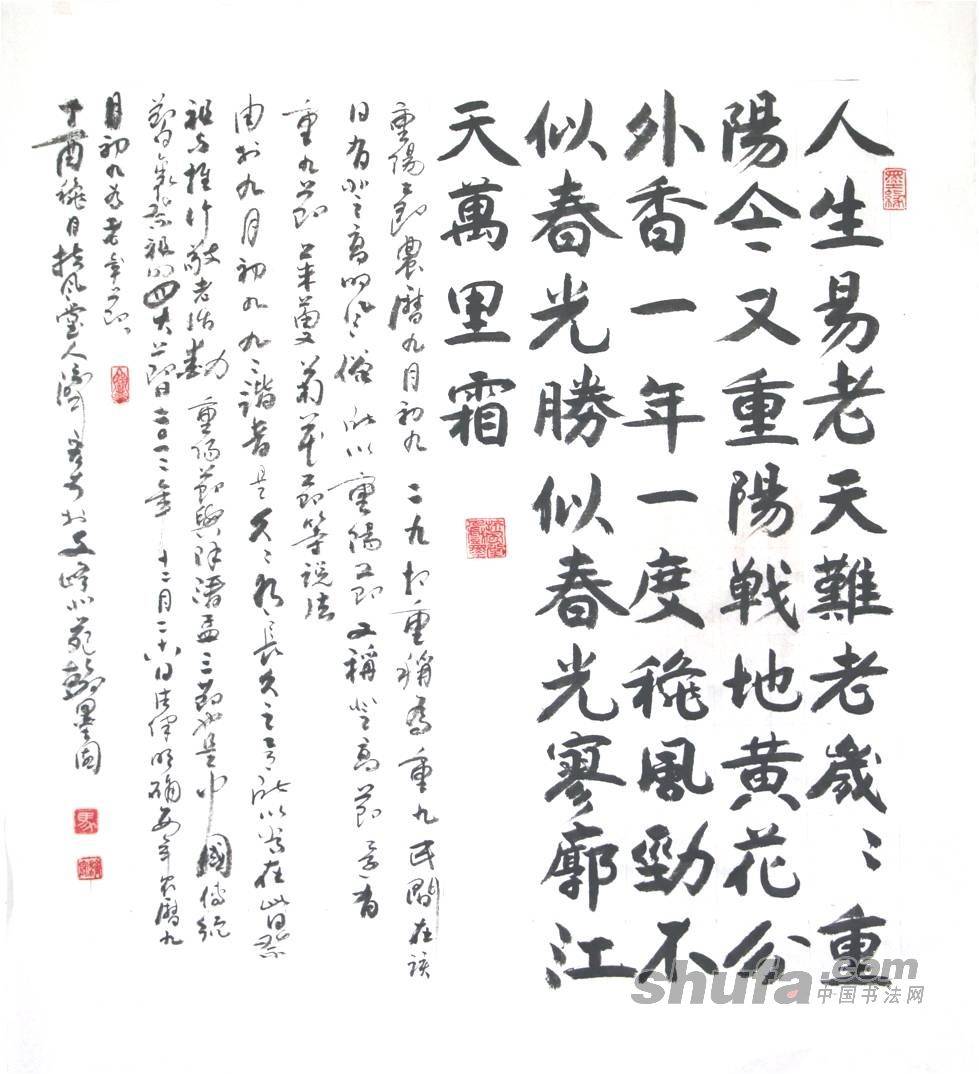 人生易老天難老歲〻重
陽今又重陽戦地黄花分
外香一年一度穐風勁不
似春光勝似春光寥廓江
天萬里霜
重陽節農曆九月初九二九相重稱為重九民間在該
日有登高的風俗所以重陽節又稱登高節還有
重九節茱萸菊花節等說法
由於九月初九九〻諧音是久〻有長久之意所以常在此日祭
祖與推行敬老活動重陽節與除清盂三節也是中國傳統
節日裏祭祖的四大節日二〇一二年十二月二十八日法律明確每年农曆九
月初九為老年節
丁酉穐月扶風堂人書於文峰北苑翰墨園
馬
shufa.com
中国书法网